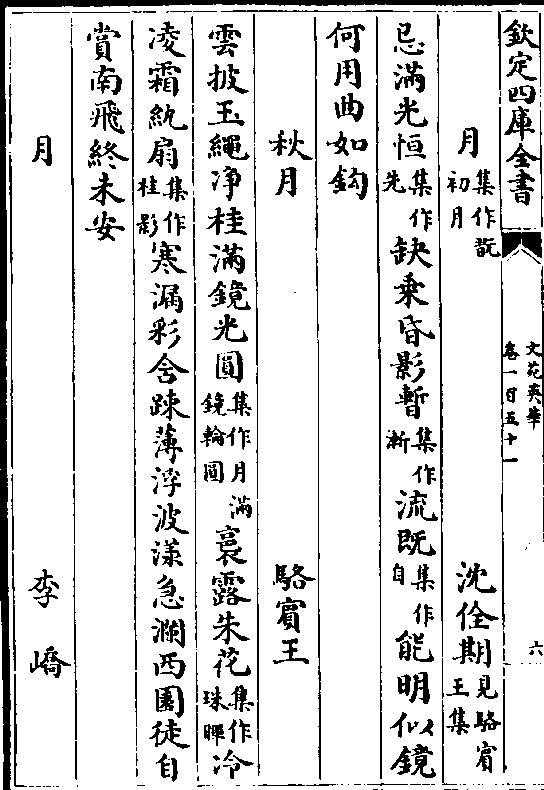 欽定四庫全書 文苑英華 卷一百五十一 六
月 集作翫初月 沈佺期 見駱賓王集
忌滿光恒 集作先 缺乘昏影暫 集作漸 流既 集作自 能明似鏡
何用曲如鈎
秋月 駱賓王
雲披玉繩浄桂滿鏡光圓 集作月滿鏡輪圓 裛露朱花 集作珠暉 冷
凌霜紈扇 集作桂影 寒漏彩含踈薄浮波漾急瀾西園徒自
賞南飛終未安
月 李嶠